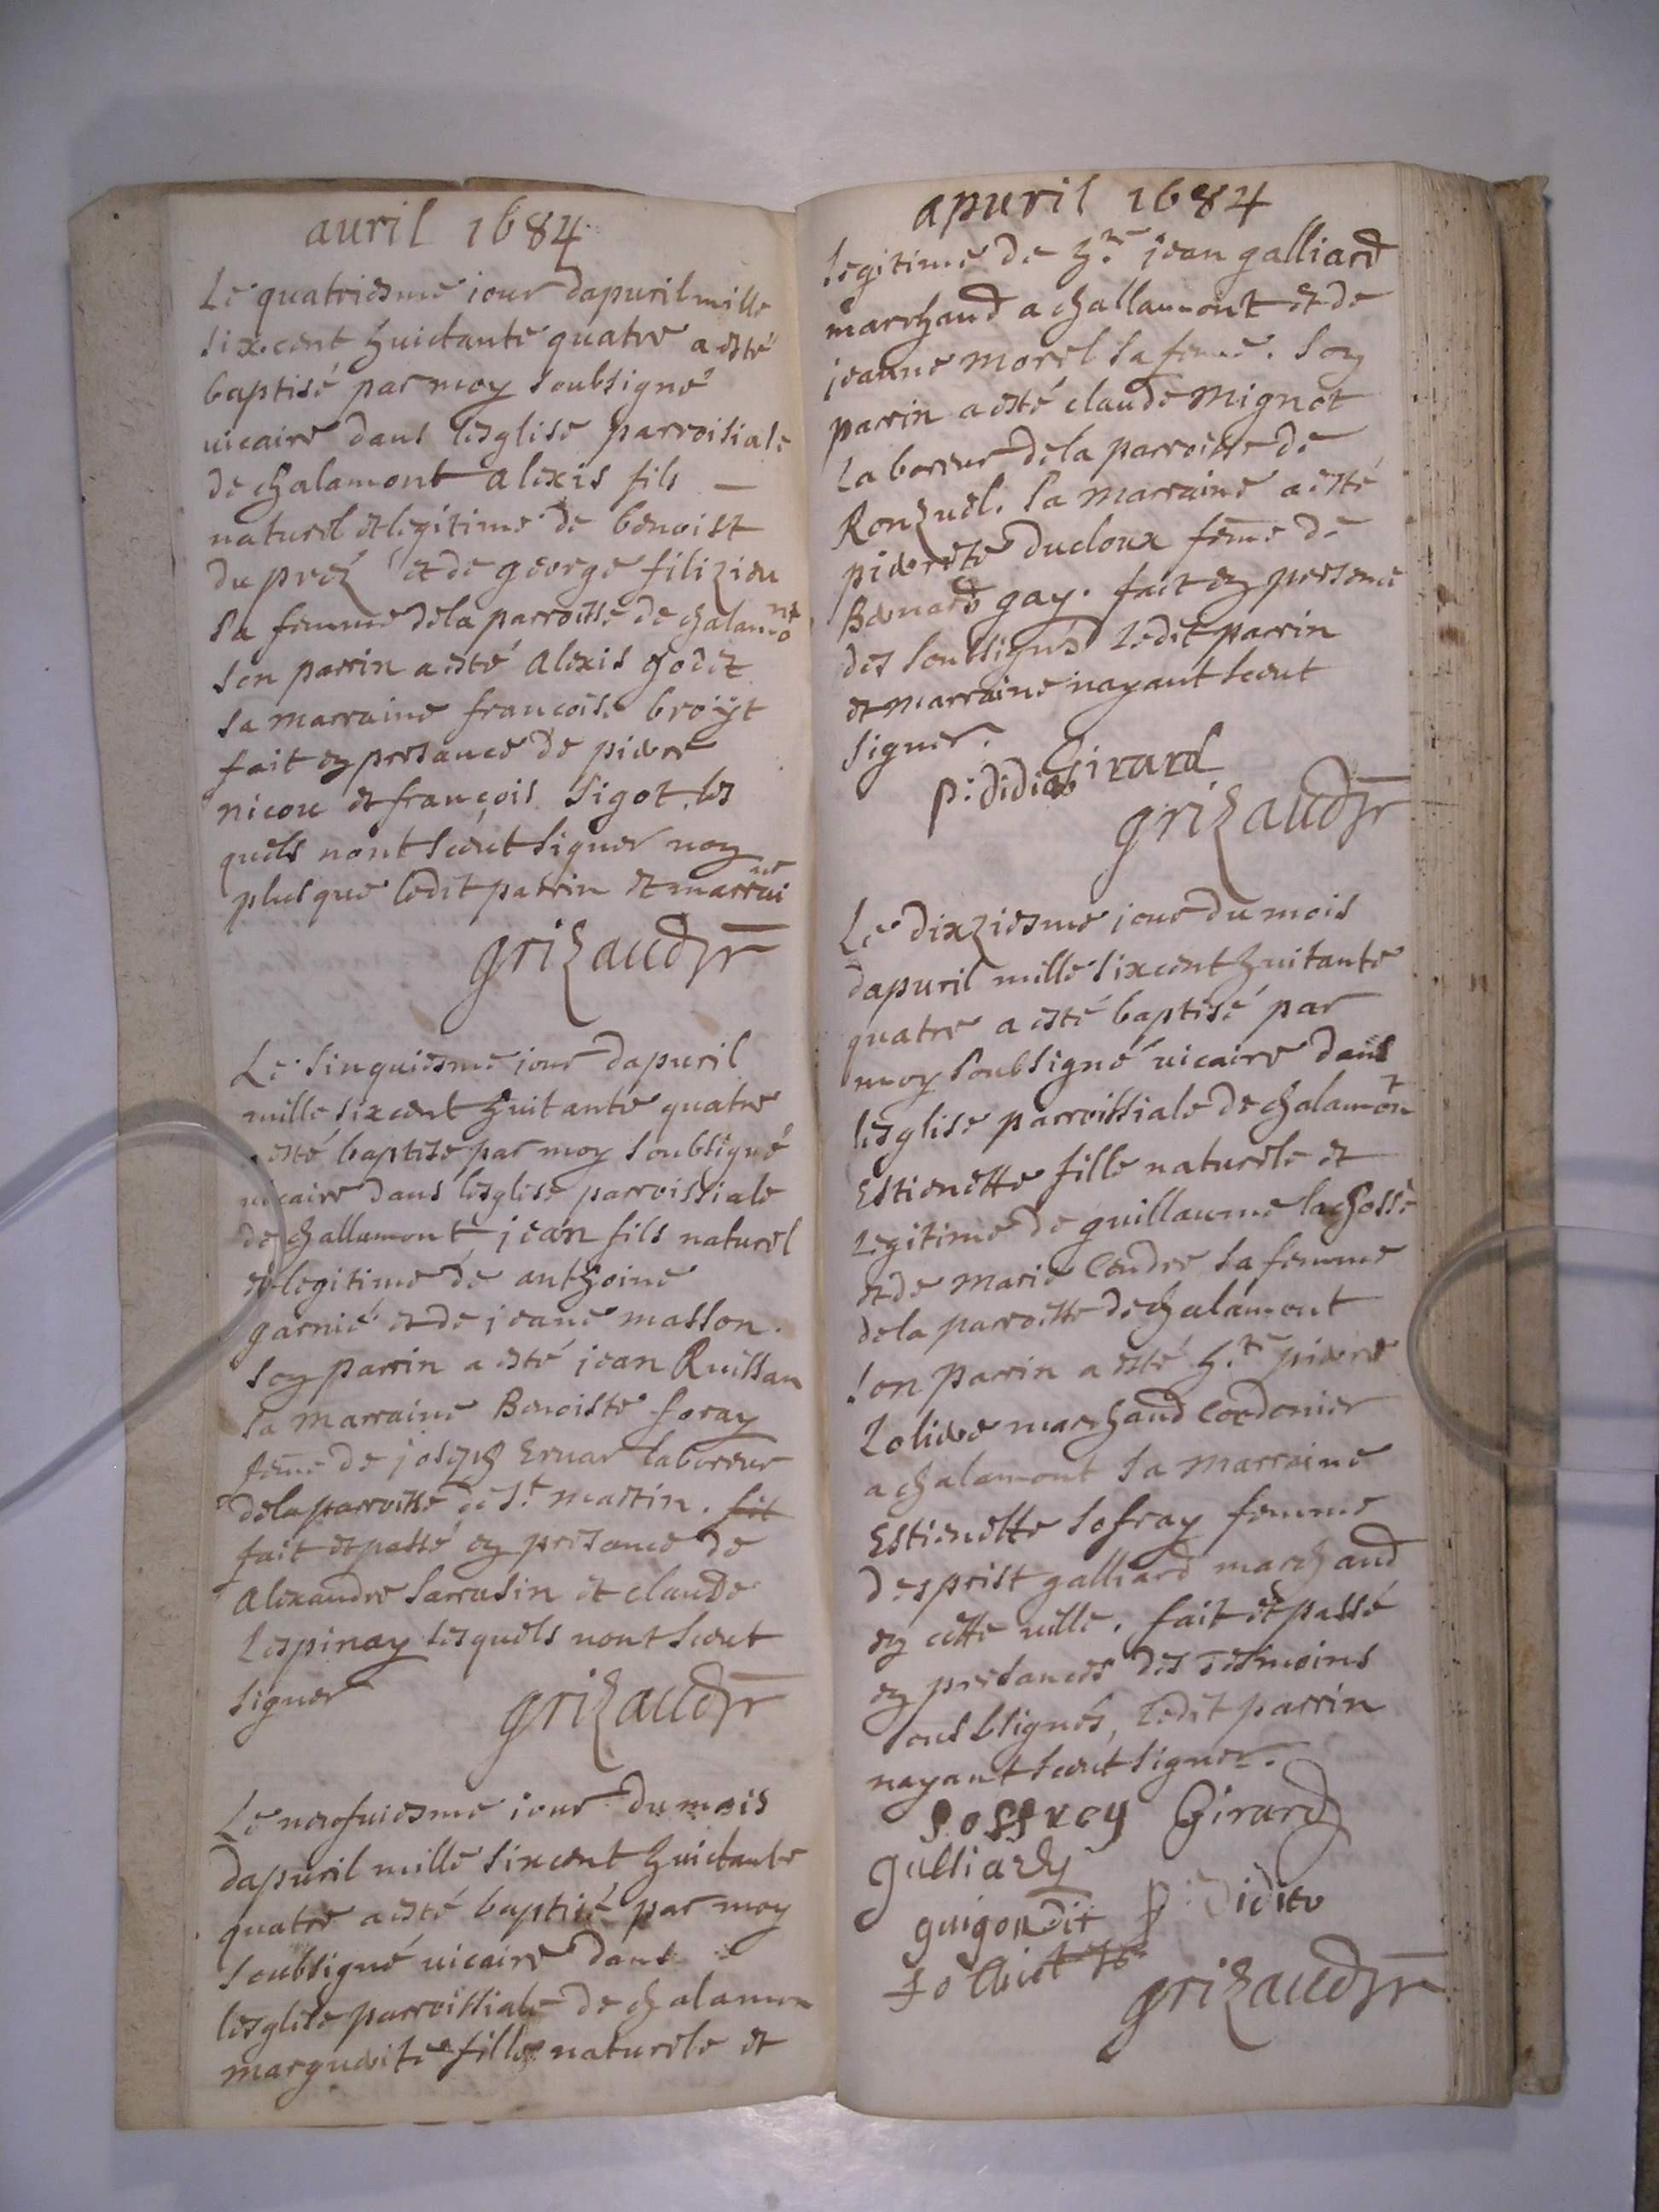 auril 1684
Le quatriesme iour dapuril mille
six cent huictante quatre a esté
baptisé par moy soubsigné
uicaire dans lesglise parroisiale
de chalamont alexis fils
naturel et legitime de benoist
du prez et de george filizieu
sa femme de la parroisse de chalamont
son parrin a esté alexis godet
sa marraine francoise broÿt
fait en presance de piere
nicou et françois sigot les
quels nont sceut signer non
plus que ledit parrin et marraine
grizaud vre
Le sinquiesme iour dapuril
mille six cent huitante quatre
a esté baptise par moy soubsigné
uicaire dans lesglise parroissiale
de challamont jean fils naturel
et legitime de anthoine
garnié et de jeane masson.
son parrin a esté jean Ruissan
sa marraine Benoiste foray
feme de joseph Eruar laboreur
de la parroisse de st martin. fit
fait et passé en presance de
alexandre sarrasin et claude
Lespinay lesquels nont sceut
signer
grizaud vre
Le neufuiesme iour du mois
dapuril mille six cent huictante
quatre a esté baptisé par moy
soubsigné uicaire dans
lesglise parroissiale de chalamon
margueite fille naturele et
apuril 1684
legitime de hre jean galliard
marchand a challamont et de
jeanne morel sa feme. son
parrin a esté claude mignot
Laboreur de la parroisse de
Ronzuel. sa marraine a esté
pierete ducloux feme de
Benard gay. fait en persene
des soubsignés ledit parrin
et marraine nayant sceut
signer.
Girard
p: didier
grizaud vre
Le dixziesme iour du mois
dapuril mille six cent huitante
quatre a esté baptisé par
moy soubsigné uicaire dans
lesglise parroissiale de chalamont
Estienette fille naturele et
Legitime de guillaume lachosse
et de marie Cendre sa femme
de la parroisse de chalamont
son parin a esté hre piere
Loliue marchand cordonier
a chalamont sa marraine
Estienette sofray femme
desprist galliard marchand
en cette uille. fait et passé
en presances des tesmoins
soubsignés, ledit parrin
nayant sceut signer.
soffrey Girard
galliard
guigon dit p: didier
grizaud vre